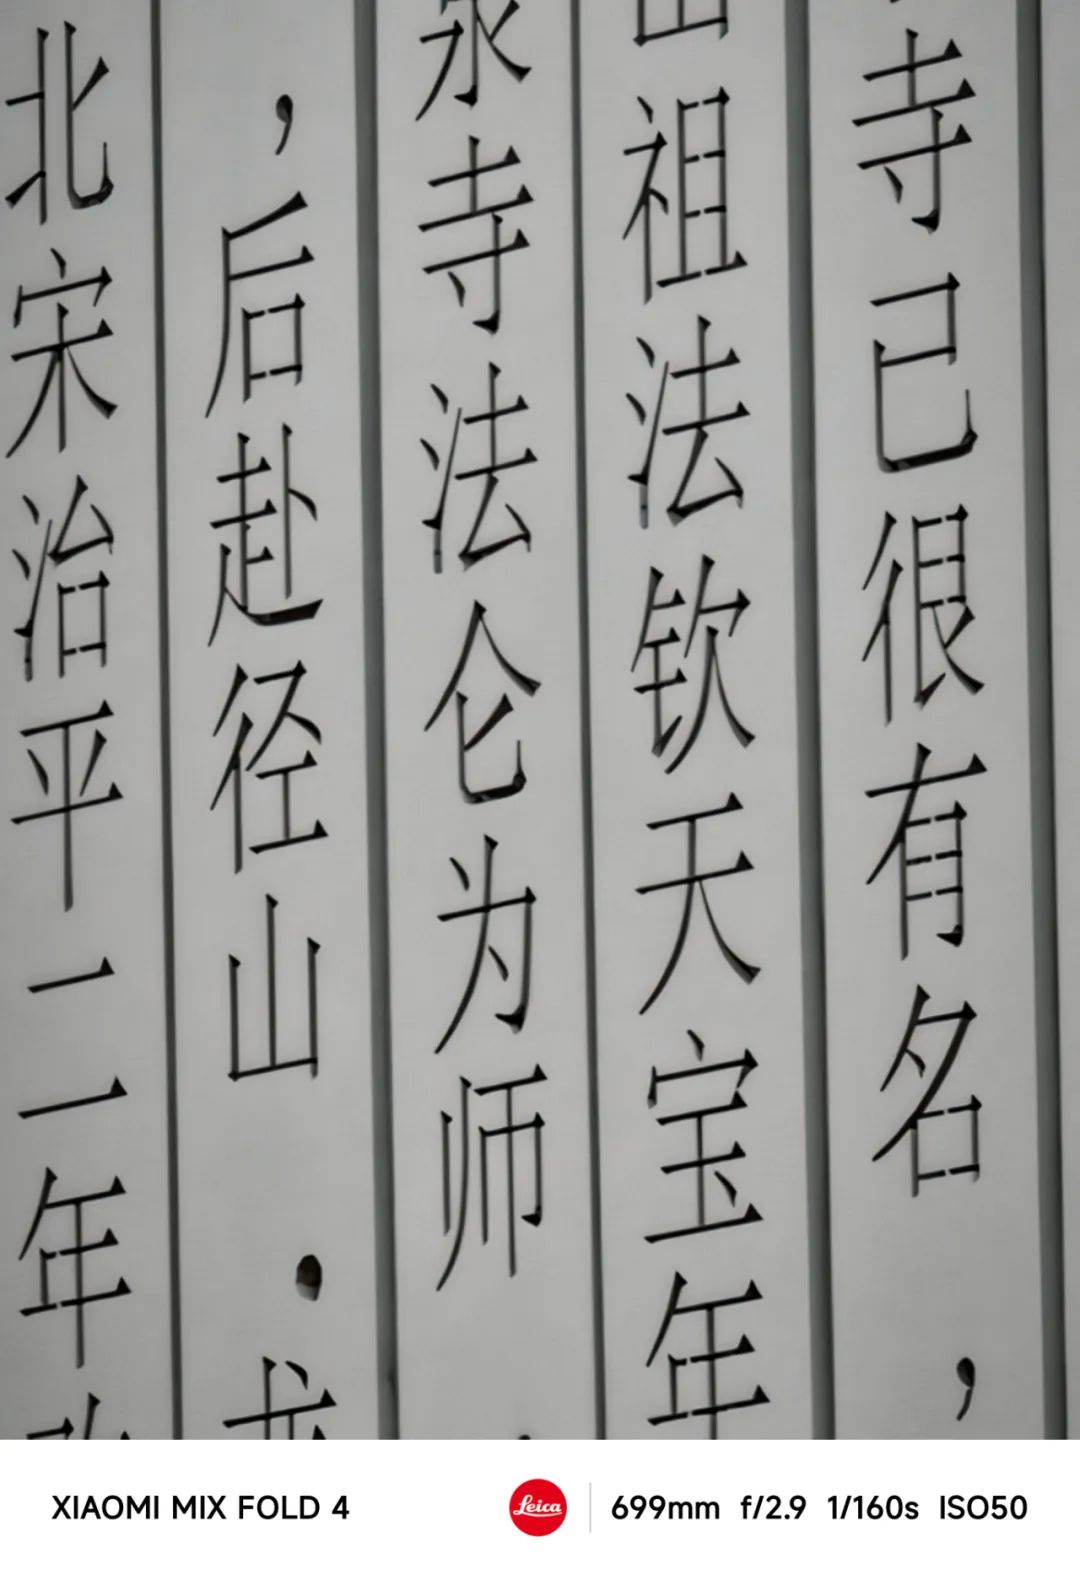 寺已很有名，
祖法钦天宝年
寺法仑为师
，后赴径山．
北宋治平二年
XIAOMI MIX FOLD 4
Leica
699mm f/2.9 1/160s ISO50